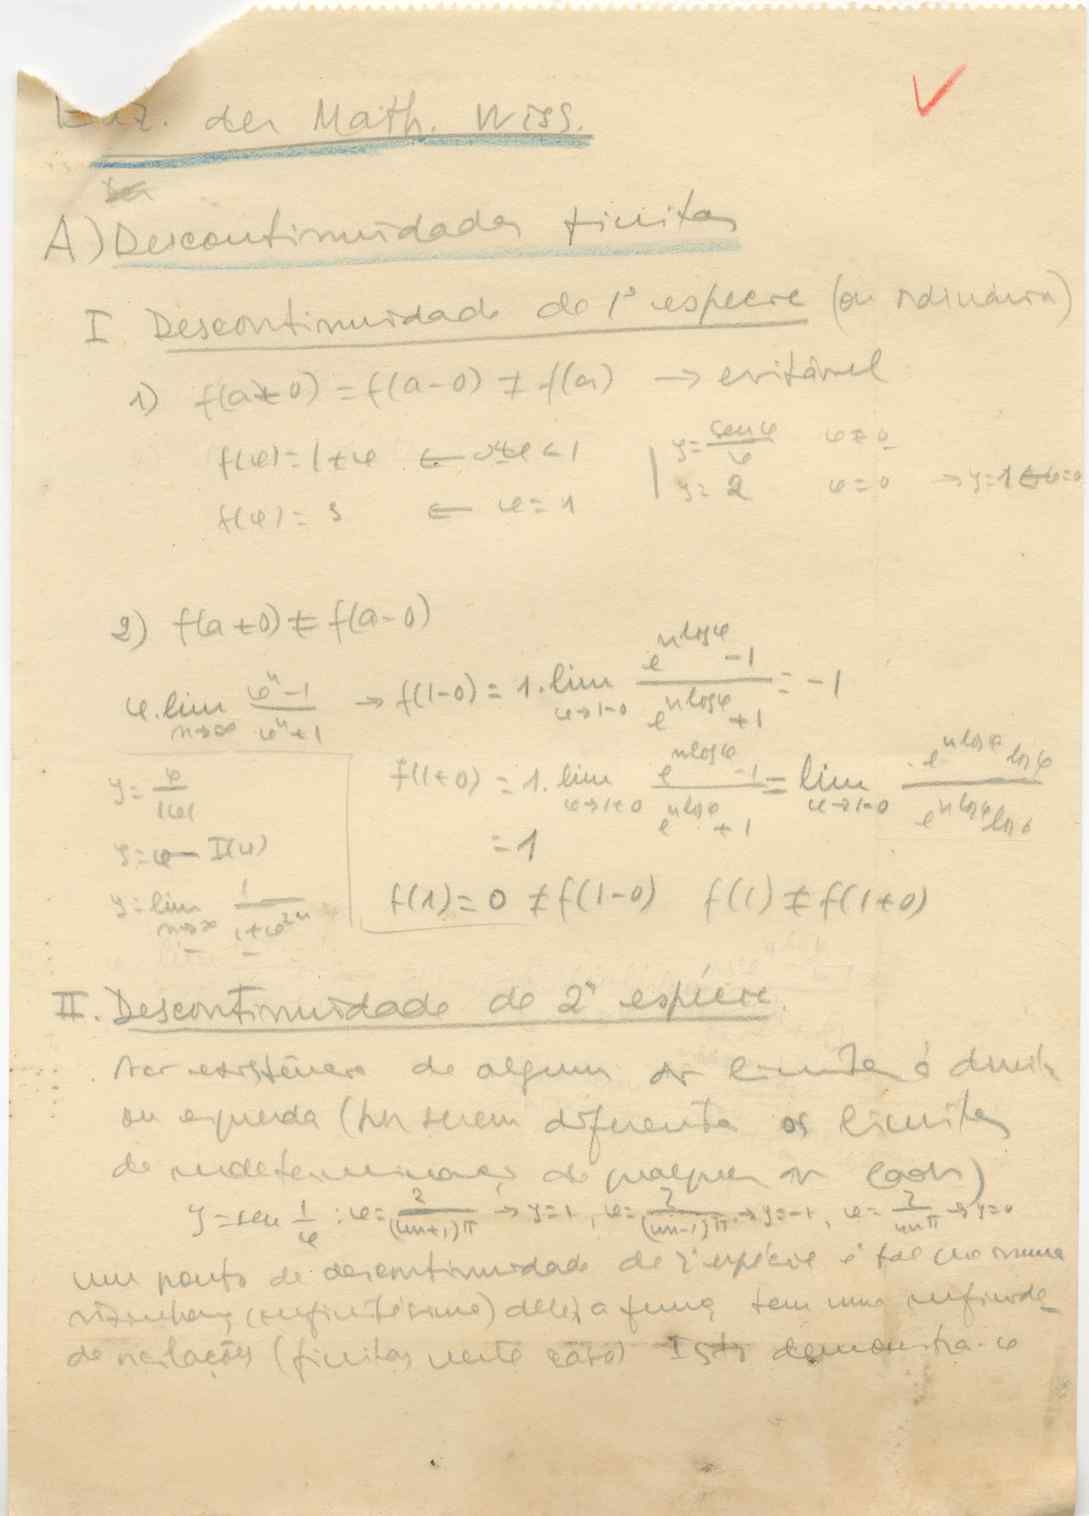 Enz. der Math. Wiss.
A) Descontinuidades finitas
I Descontinuidade de 1ª espécie (ou ordinária)
1) f(a+0) = f(a-0) ≠ f(a) → evitável
f(φ) = 1+φ ← φ < 1 | y = sen φ / φ φ ≠ 0
f(φ) = 3 ← φ = 1 | y = 2 φ = 0 → y = 1 ← φ = 0
2) f(a+0) ≠ f(a-0)
φ. lim n→∞ (φ^n - 1)/(φ^n + 1) → f(1-0) = 1. lim φ→1-0 (e^{n log φ} - 1)/(e^{n log φ} + 1) = -1
f(1+0) = 1. lim φ→1+0 (e^{n log φ} - 1)/(e^{n log φ} + 1) = lim φ→1+0 (e^{n log φ} log φ)/(e^{n log φ} log φ)
= 1
f(1) = 0 ≠ f(1-0) f(1) ≠ f(1+0)
y = φ/|φ|
y = φ - I(φ)
y = lim n→∞ 1/(1+φ^{2n})
II. Descontinuidade de 2ª espécie.
existência de algum limite à direita
ou esquerda (por serem diferentes os limites
de indeterminação de qualquer lado)
y = sen 1/φ : φ = 2/((4n+1)π) → y = 1, φ = 2/((4n-1)π) → y = -1, φ = 2/(4nπ) → y = 0
um ponto de descontinuidade de 2ª espécie é tal que numa
vizinhança (infinitésima) dele, a função tem uma infinidade
de oscilações (finitas neste caso) Isto demonstra-se